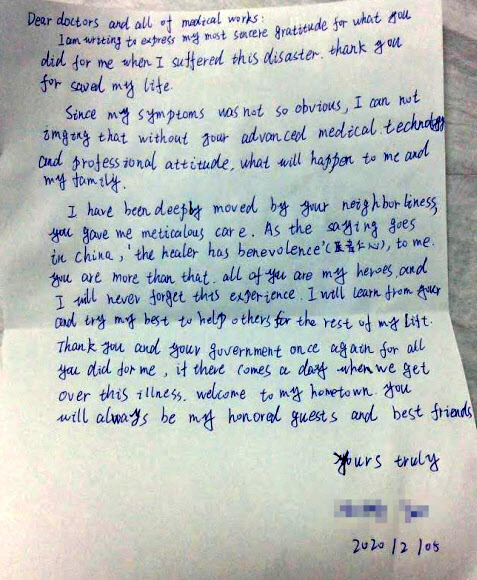 Dear doctors and all of medical works:
I am writing to express my most sincere gratitude for what you
did for me when I suffered this disaster. thank you
for saved my life.
Since my symptoms was not so obvious, I can not
imging that without your advanced medical technology
and professional attitude, what will happen to me and
my family.
I have been deeply moved by your neighborliness,
you gave me meticalous care. As the saying goes
in china, 'the healer has benevolence' (医者仁心), to me.
you are more than that. all of you are my heroes, and
I will never forget this experience. I will learn from your
and try my best to help others for the rest of my lift.
Thank you and your government once again for all
you did for me, if there comes a day when we get
over this illness. welcome to my hometown. you
will always be my honored guests and best friends
yours truly
2020/2/08